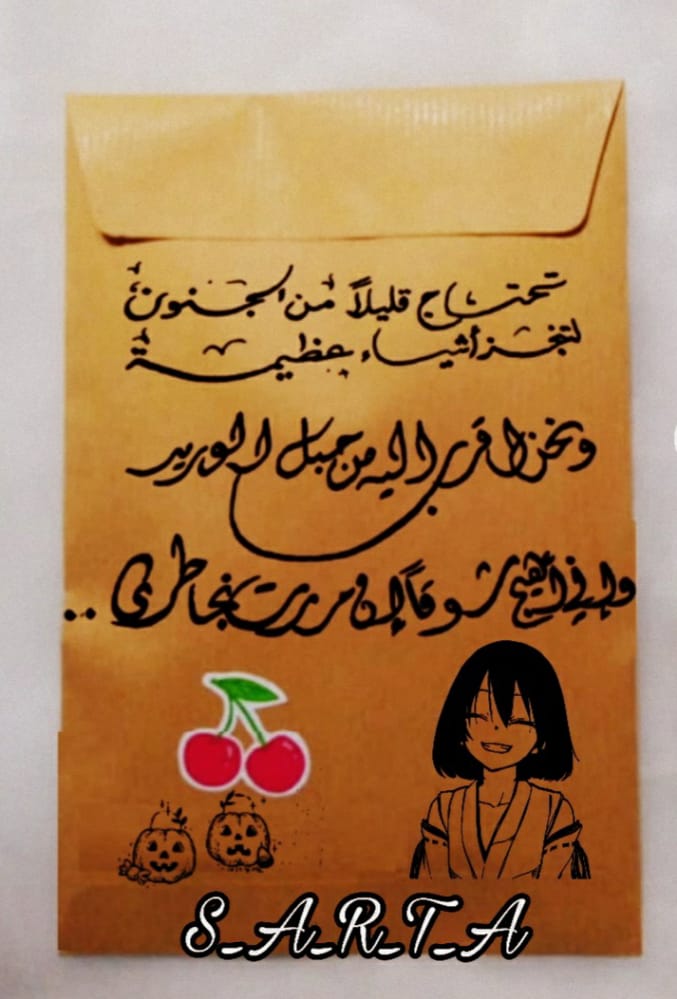 تحتاج قليلاً من الجنون
لتنجز أشياء عظيمة
ونحن اقرب اليه من حبل الوريد
وإني أهيج شوقاً إن مررت بخاطري ..
S_A_R_T_A